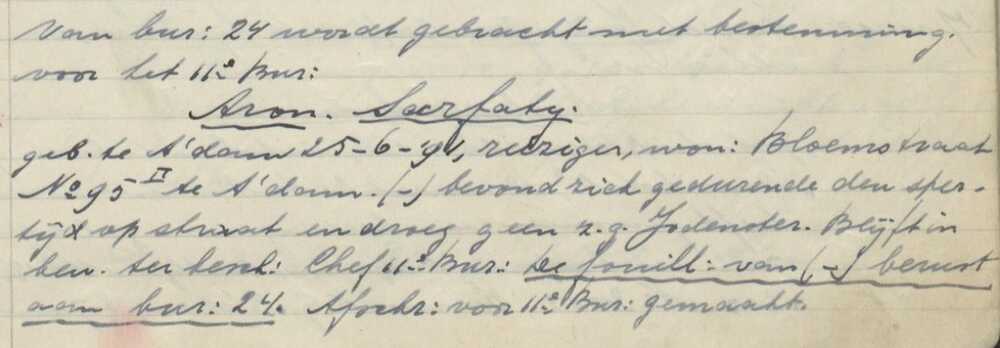 Van bur: 24 wordt gebracht met bestemming.
voor het 11e Bur:
Aron. Sarfaty.
geb. te A'dam 25-6-'91, reiziger, won: Bloemstraat
No 95 II te A'dam. (-) bevond zich gedurende den sper-
tijd op straat en droeg geen z.g. Jodenster. Blijft in
bew. ter besch: Chef 11e Bur: De fouill: van (-) berust
aan bur: 24. Afschr: voor 11e Bur: gemaakt.